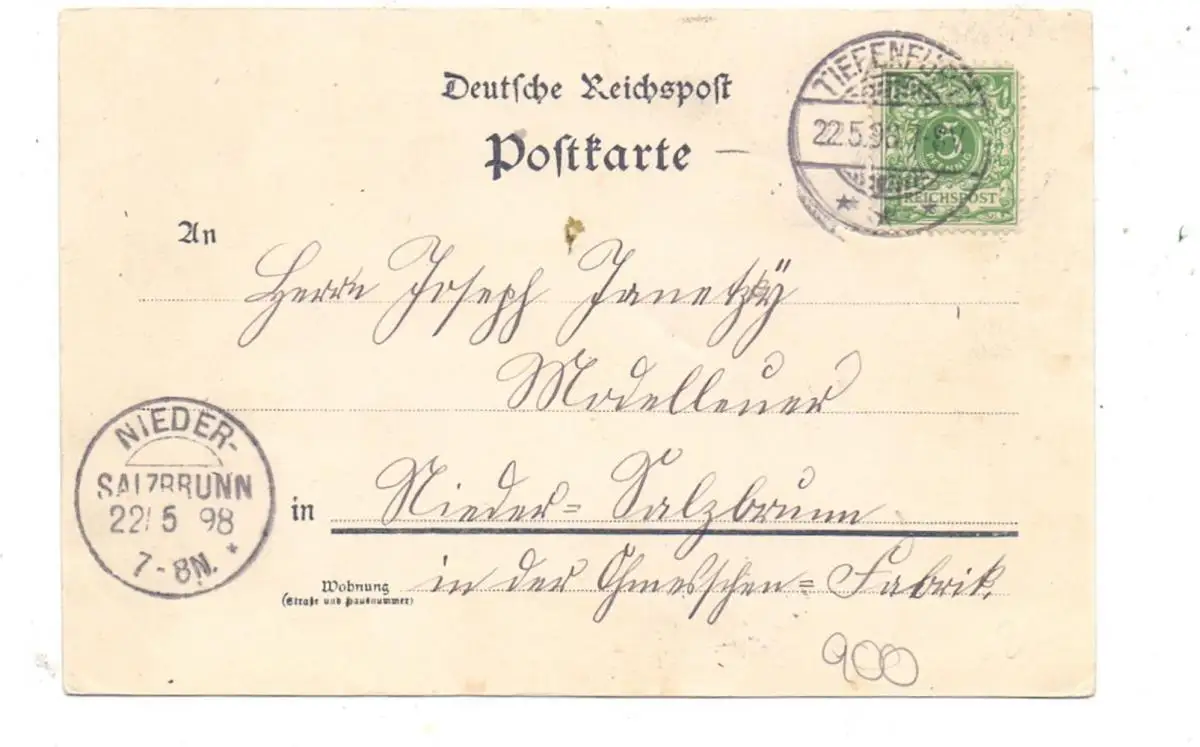 Deutsche Reichspost
Postkarte
TIEFENFURT
22.5.98 7-8V
5
PFENNIG
REICHSPOST
An
Herrn Joseph Janetzky
Modelleur
NIEDER-
SALZBRUNN
22/5 98
7-8N.
in Nieder-Salzbrunn
Wohnung
(Straße und Hausnummer)
in der Ohmesschen-Fabrik.
900